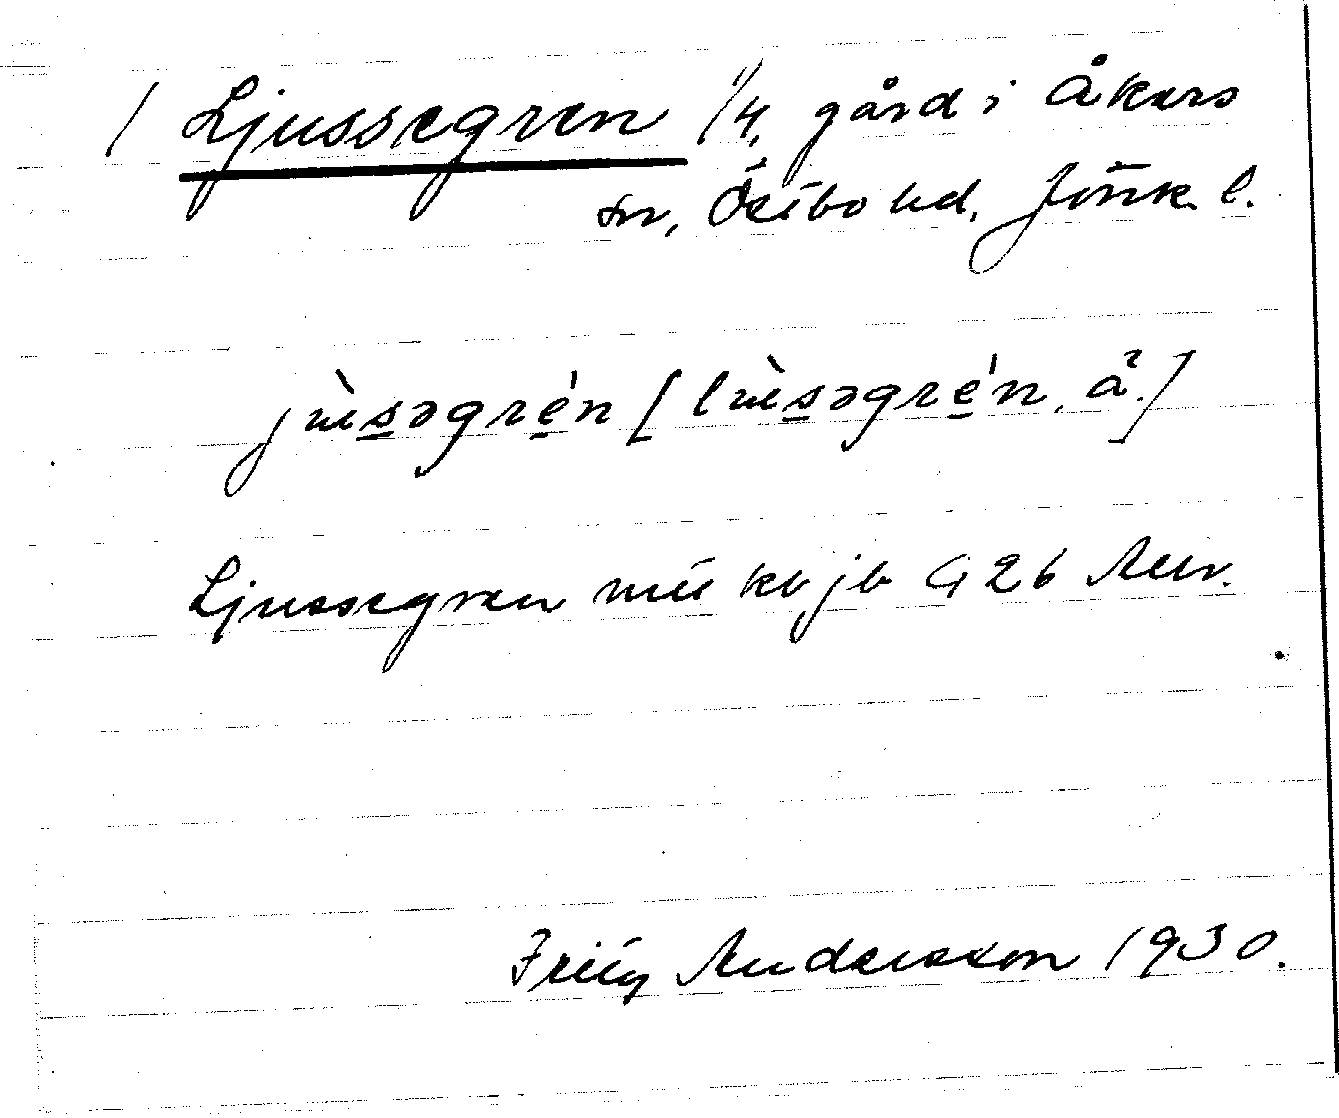 / Ljussegren 1/4 gård i Åkers
sn, Östbo hd, Jönk. l.
jùsəgrén [lùsəgrén, ä.]
Ljussegren kb jb G 26
Fritz Andersson 1930.